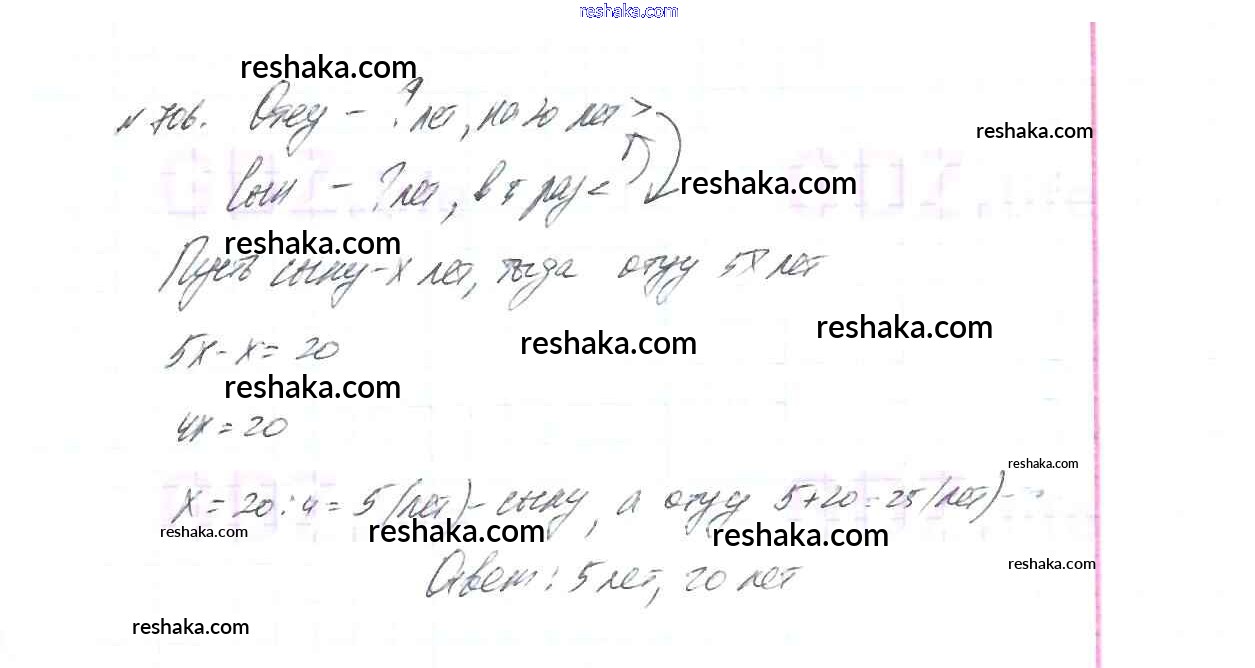 reshaka.com
reshaka.com
№ 706. Отцу - ? лет, на 20 лет >
reshaka.com
Сын - ? лет, в 5 раз <
reshaka.com
reshaka.com
Пусть сыну - х лет, тогда отцу 5х лет
reshaka.com
5х - х = 20
reshaka.com
reshaka.com
4х = 20
reshaka.com
х = 20 : 4 = 5 (лет) - сыну, а отцу 5 + 20 = 25 (лет) -
reshaka.com
reshaka.com
reshaka.com
reshaka.com
Ответ: 5 лет, 20 лет
reshaka.com